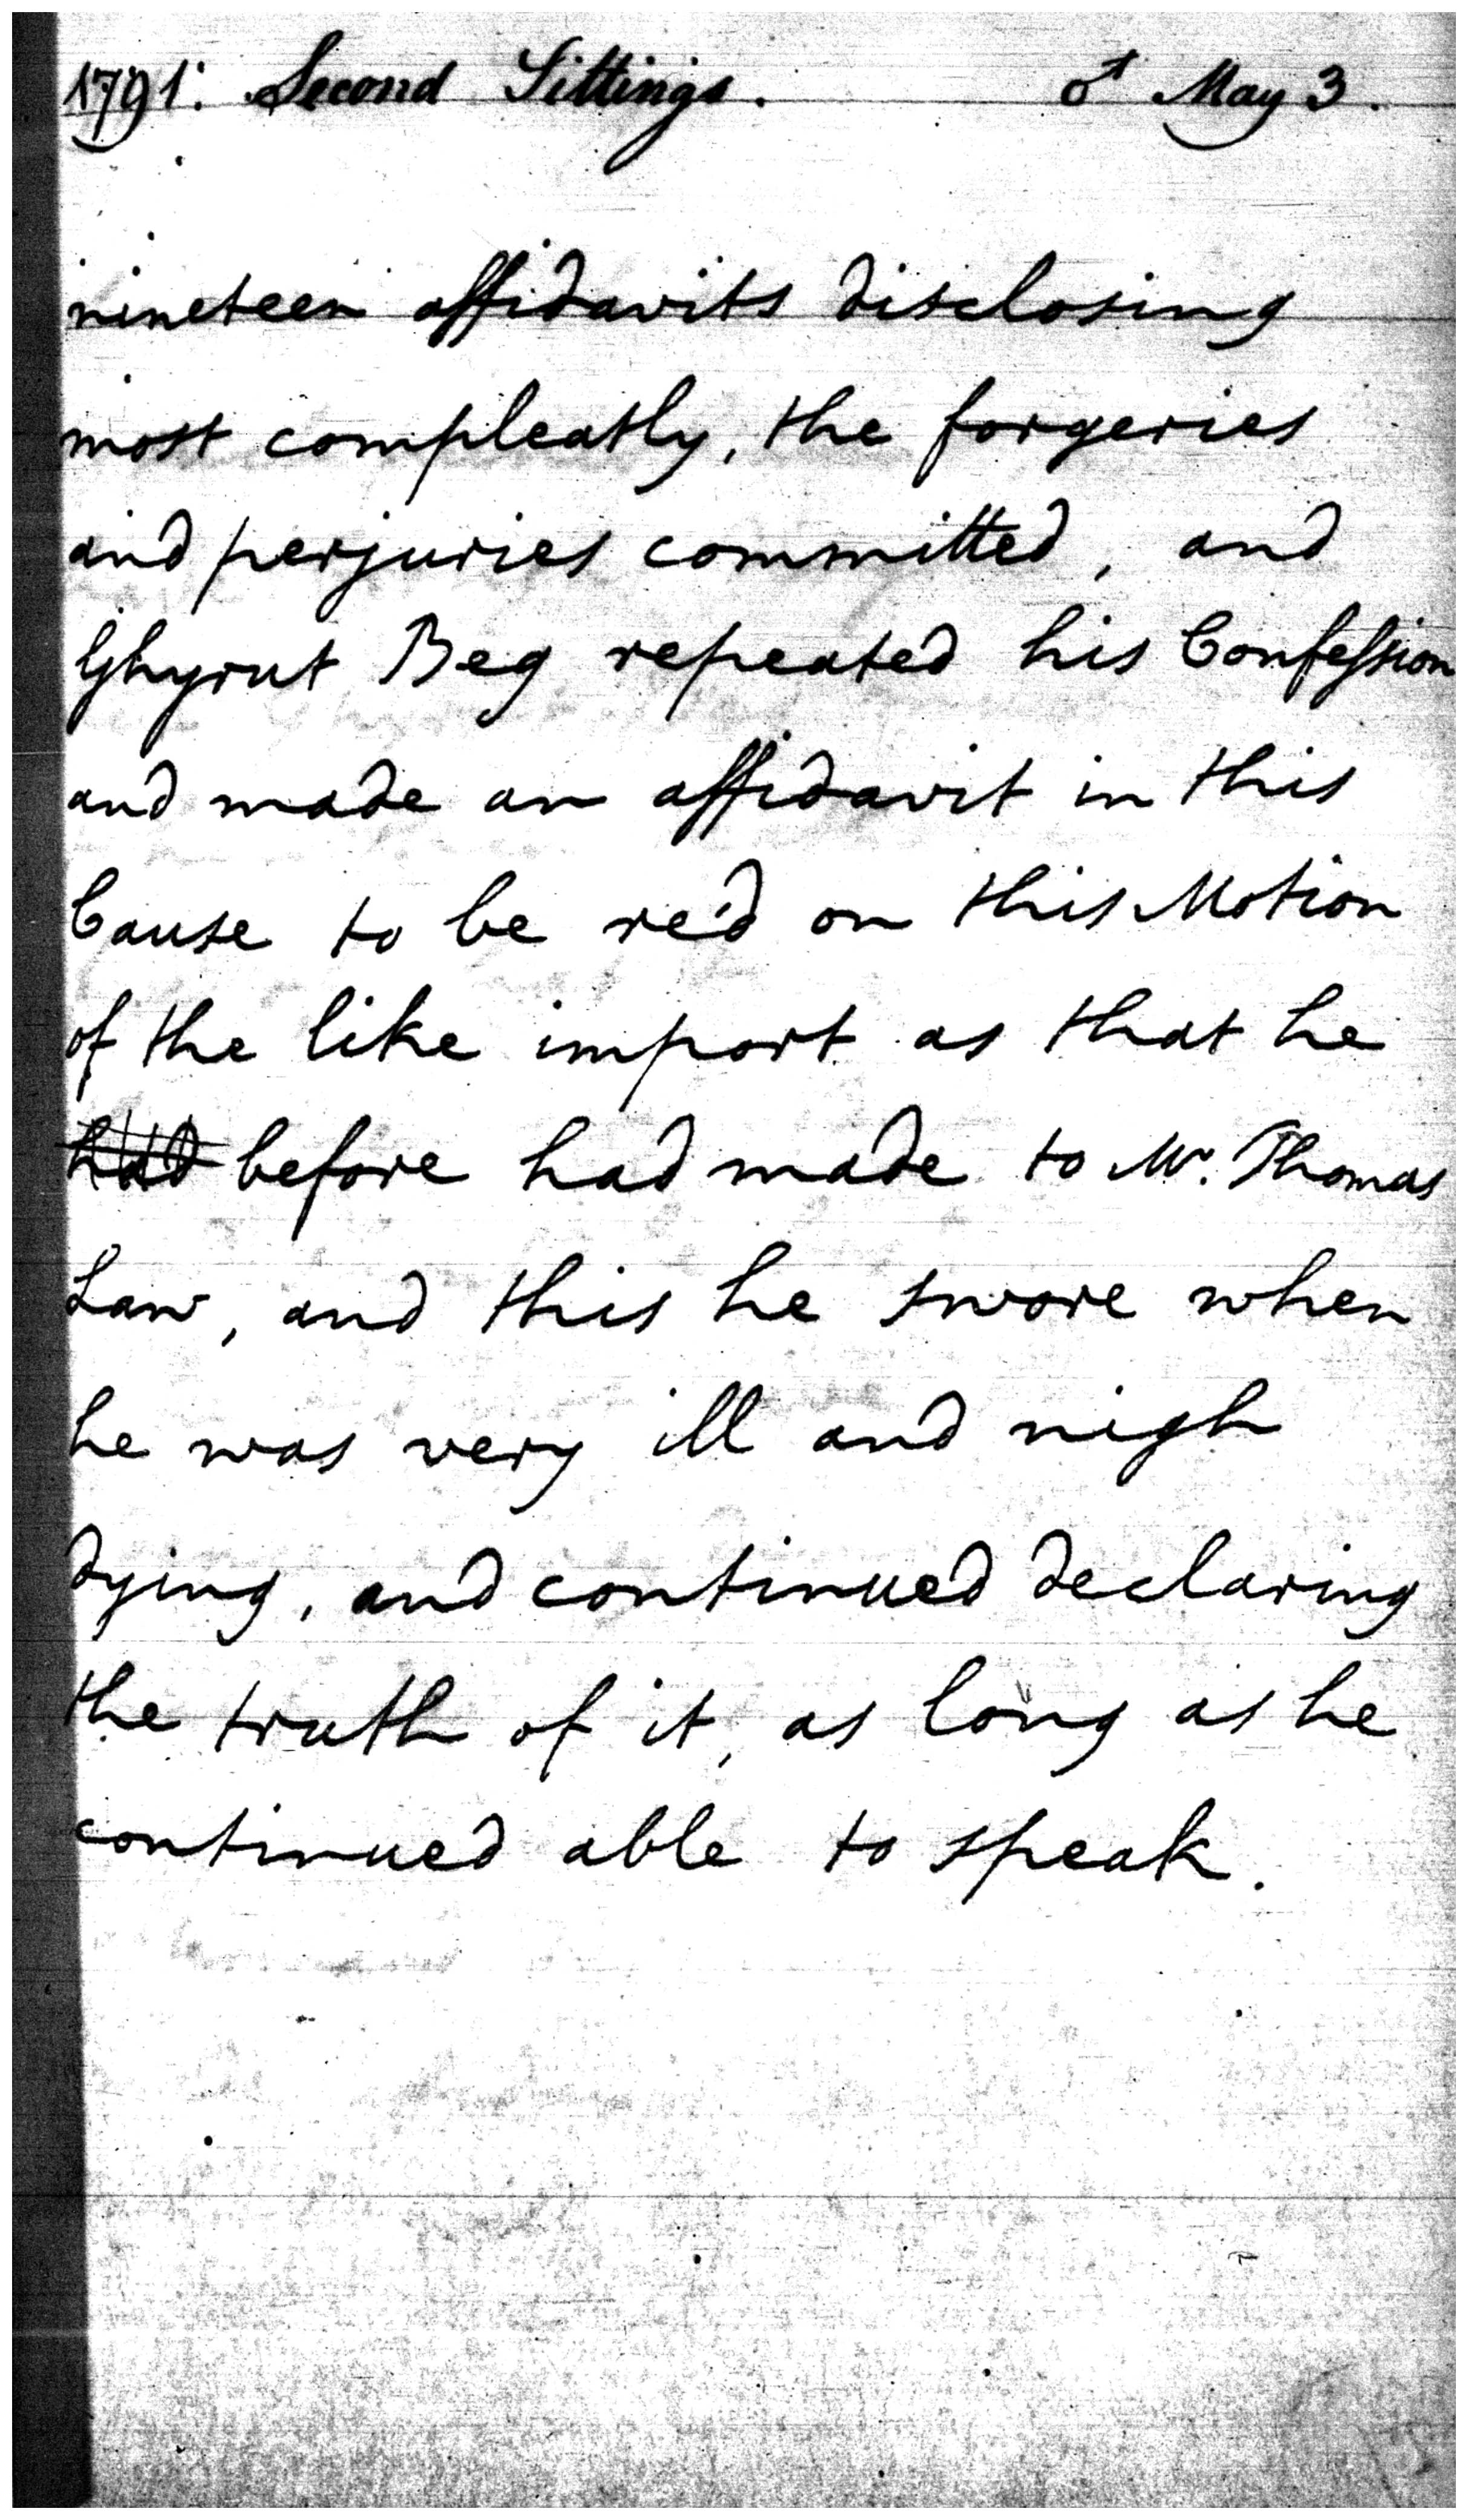 1791. Second Sittings. ♂ May 3.
nineteen affidavits disclosing
most compleatly, the forgeries
and perjuries committed, and
Ghyrut Beg repeated his Confession
and made an affidavit in this
Cause to be re'd on this Motion
of the like import as that he
had before had made to Mr. Thomas
Law, and this he swore when
he was very ill and nigh
dying, and continued declaring
the truth of it, as long as he
continued able to speak.